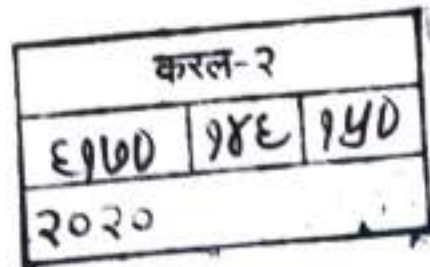 करल-२
६१७० १४६ १५०
२०२०